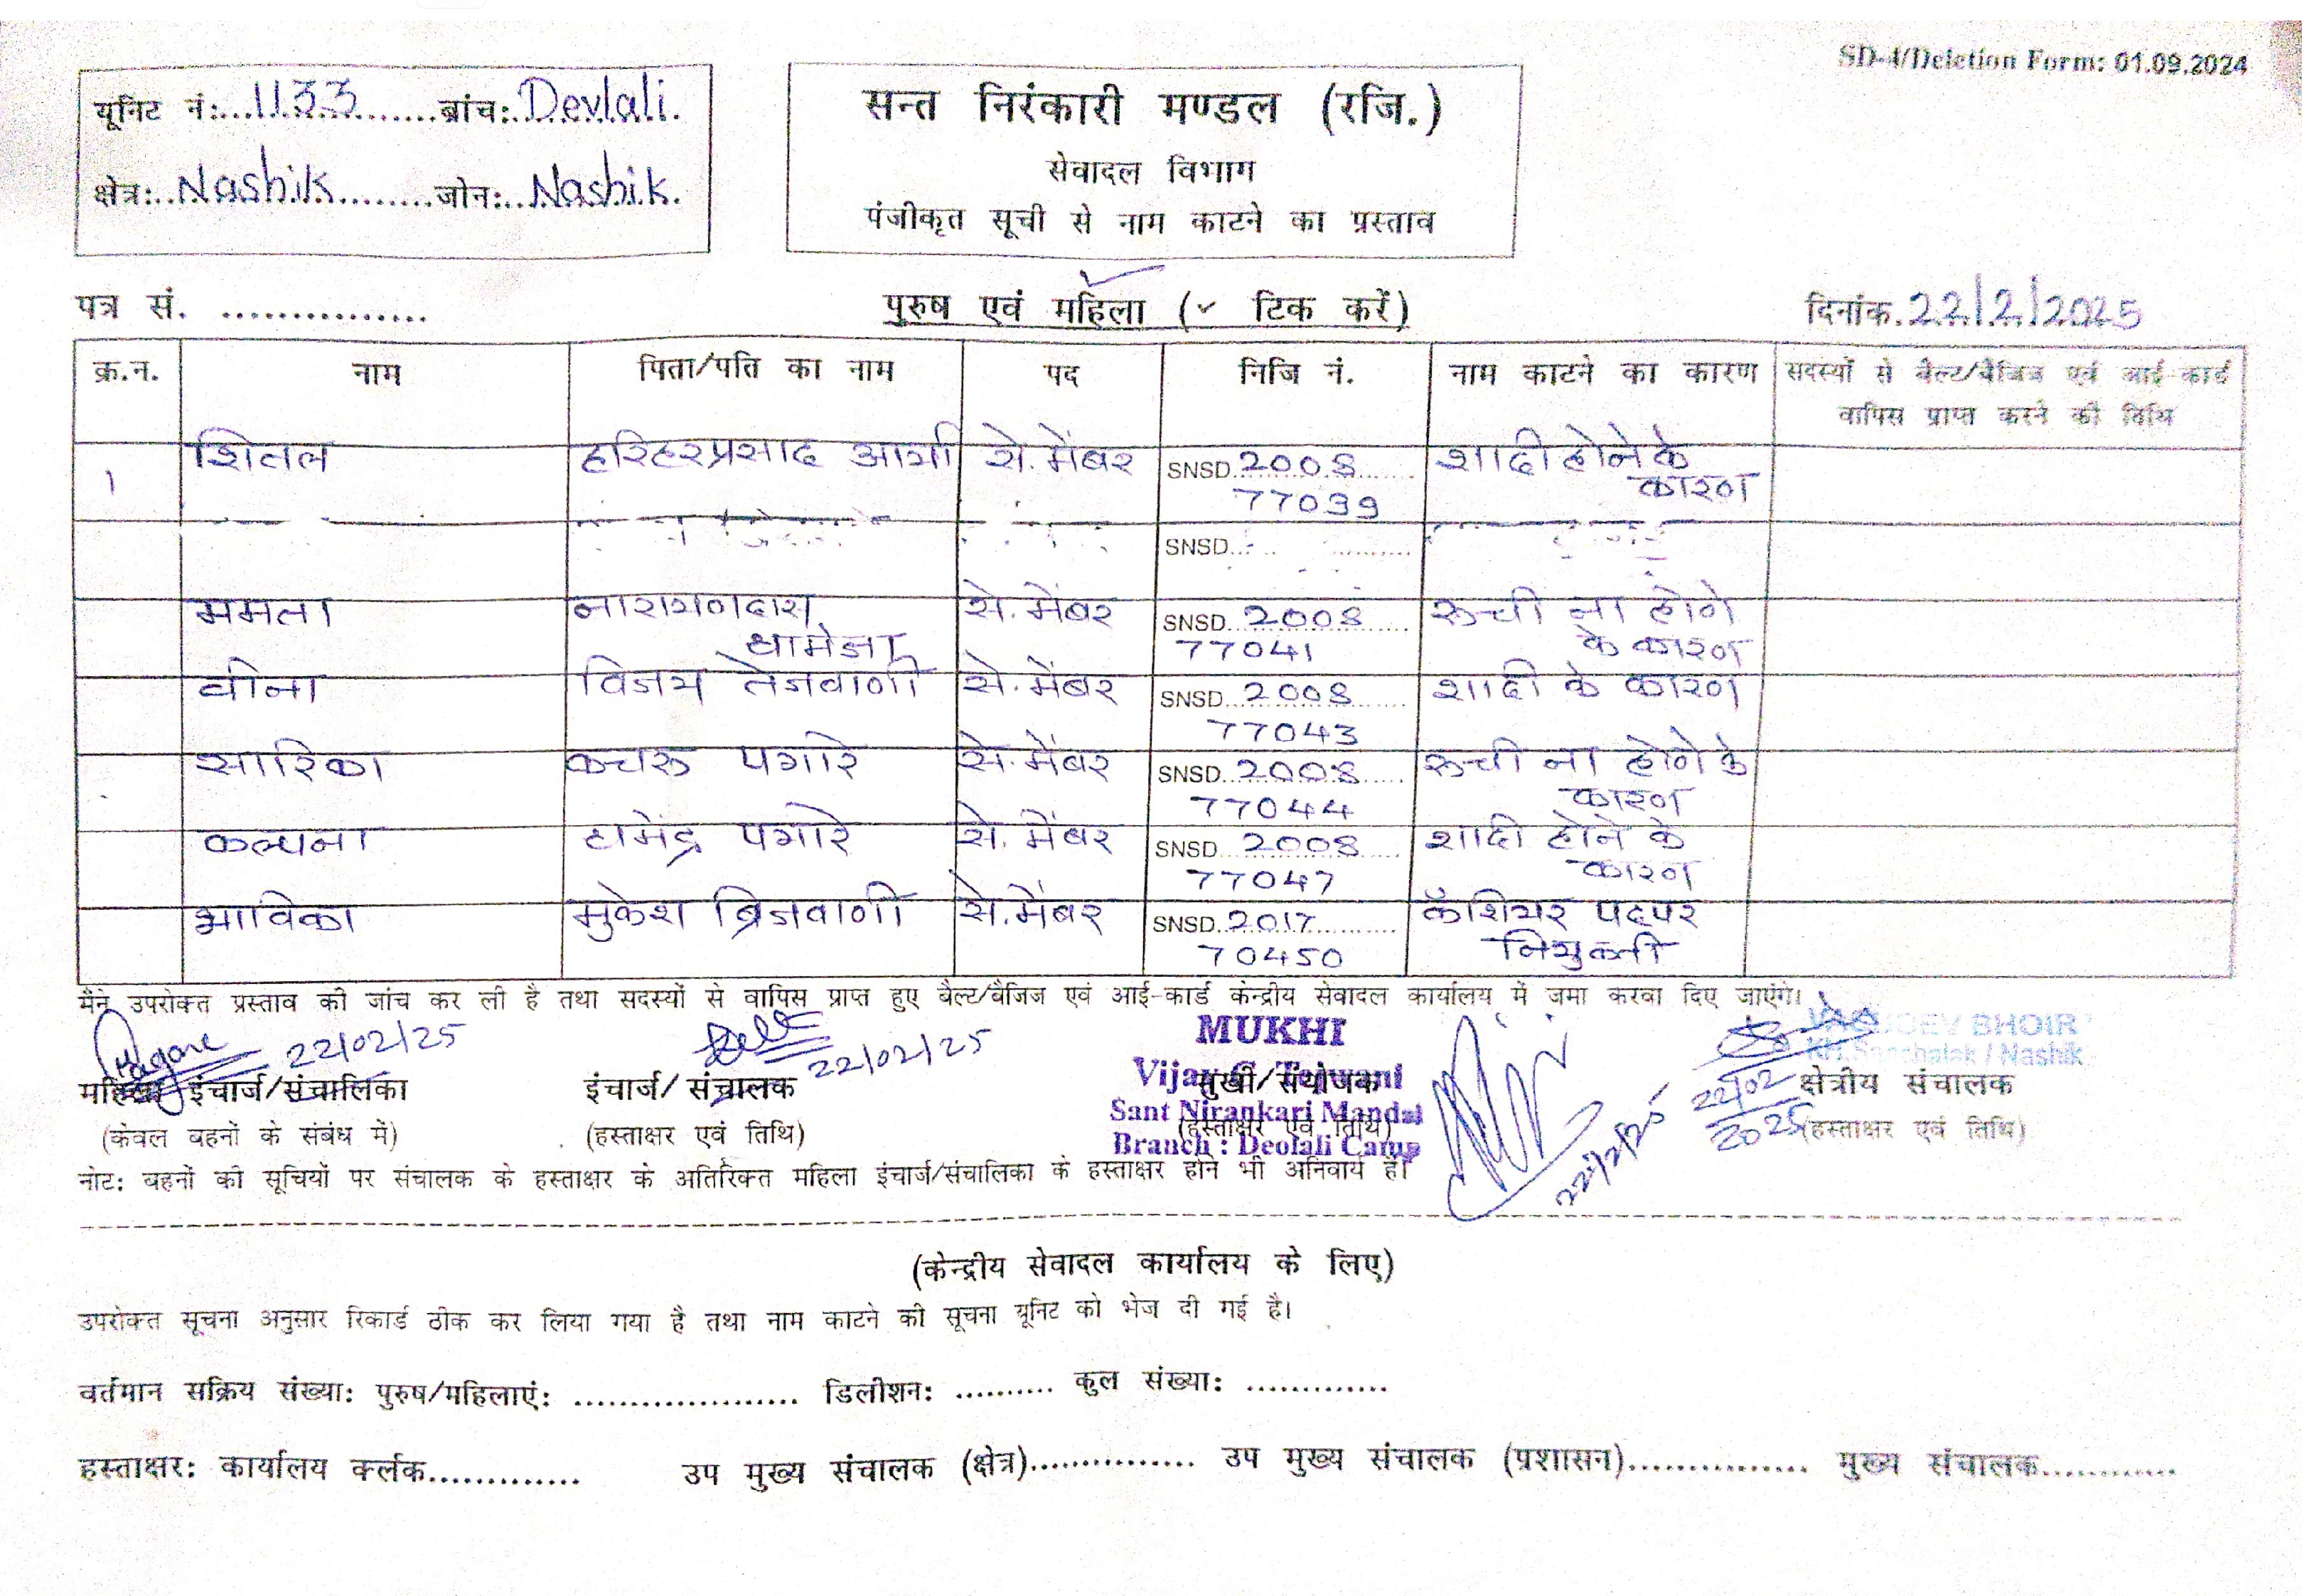 SD-4/Deletion Form: 01.09.2024
यूनिट नं:...1133...ब्रांच: Devlali.
क्षेत्र:..Nashik........जोन:..Nashik.
सन्त निरंकारी मण्डल (रजि.)
सेवादल विभाग
पंजीकृत सूची से नाम काटने का प्रस्ताव
पत्र सं. ............... पुरुष एवं महिला (✓ टिक करें) दिनांक.22/2/2025
क्र.न. नाम पिता/पति का नाम पद निजि नं. नाम काटने का कारण सदस्यों से बैल्ट/बैजिज एवं आई-कार्ड
वापिस प्राप्त करने की तिथि
1 शितल हरिहरप्रसाद आर्मी से. मेंबर SNSD 2008 शादी होने के
77039 कारण
SNSD
ममता नारायणदास से. मेंबर SNSD 2008 रुची ना होणे
थामेजा 77041 के कारण
वीना विजय तेजवाणी से. मेंबर SNSD 2008 शादी के कारण
77043
सारिका कचरु पगारे से. मेंबर SNSD 2008 रुची ना होणे के
77044 कारण
कल्पना पगारे से. मेंबर SNSD 2008 शादी होने के
77047 कारण
भाविका मुकेश ब्रिजवाणी से. मेंबर SNSD 2017 कॅशियर पदपर
70450 नियुक्ती
मैंने उपरोक्त प्रस्ताव की जांच कर ली है तथा सदस्यों से वापिस प्राप्त हुए बैल्ट/बैजिज एवं आई-कार्ड केन्द्रीय सेवादल कार्यालय में जमा करवा दिए जाएंगे।
22/02/25 22/02/25 MUKHI BHOIR
Vijay Sanchalak / Nashik
महिला इंचार्ज/संचालिका इंचार्ज/ संचालक मुखी/संयोजक 22/02/2025 क्षेत्रीय संचालक
Sant Nirankari Mandal
(केवल बहनों के संबंध में) (हस्ताक्षर एवं तिथि) (हस्ताक्षर एवं तिथि) 22/2/25 (हस्ताक्षर एवं तिथि)
Branch : Deolali Camp
नोट: बहनों की सूचियों पर संचालक के हस्ताक्षर के अतिरिक्त महिला इंचार्ज/संचालिका के हस्ताक्षर होने भी अनिवार्य हैं।
(केन्द्रीय सेवादल कार्यालय के लिए)
उपरोक्त सूचना अनुसार रिकार्ड ठीक कर लिया गया है तथा नाम काटने की सूचना यूनिट को भेज दी गई है।
वर्तमान सक्रिय संख्या: पुरुष/महिलाएं: .................... डिलीशन: .......... कुल संख्या: .............
हस्ताक्षर: कार्यालय क्लर्क............. उप मुख्य संचालक (क्षेत्र)............... उप मुख्य संचालक (प्रशासन)................ मुख्य संचालक............